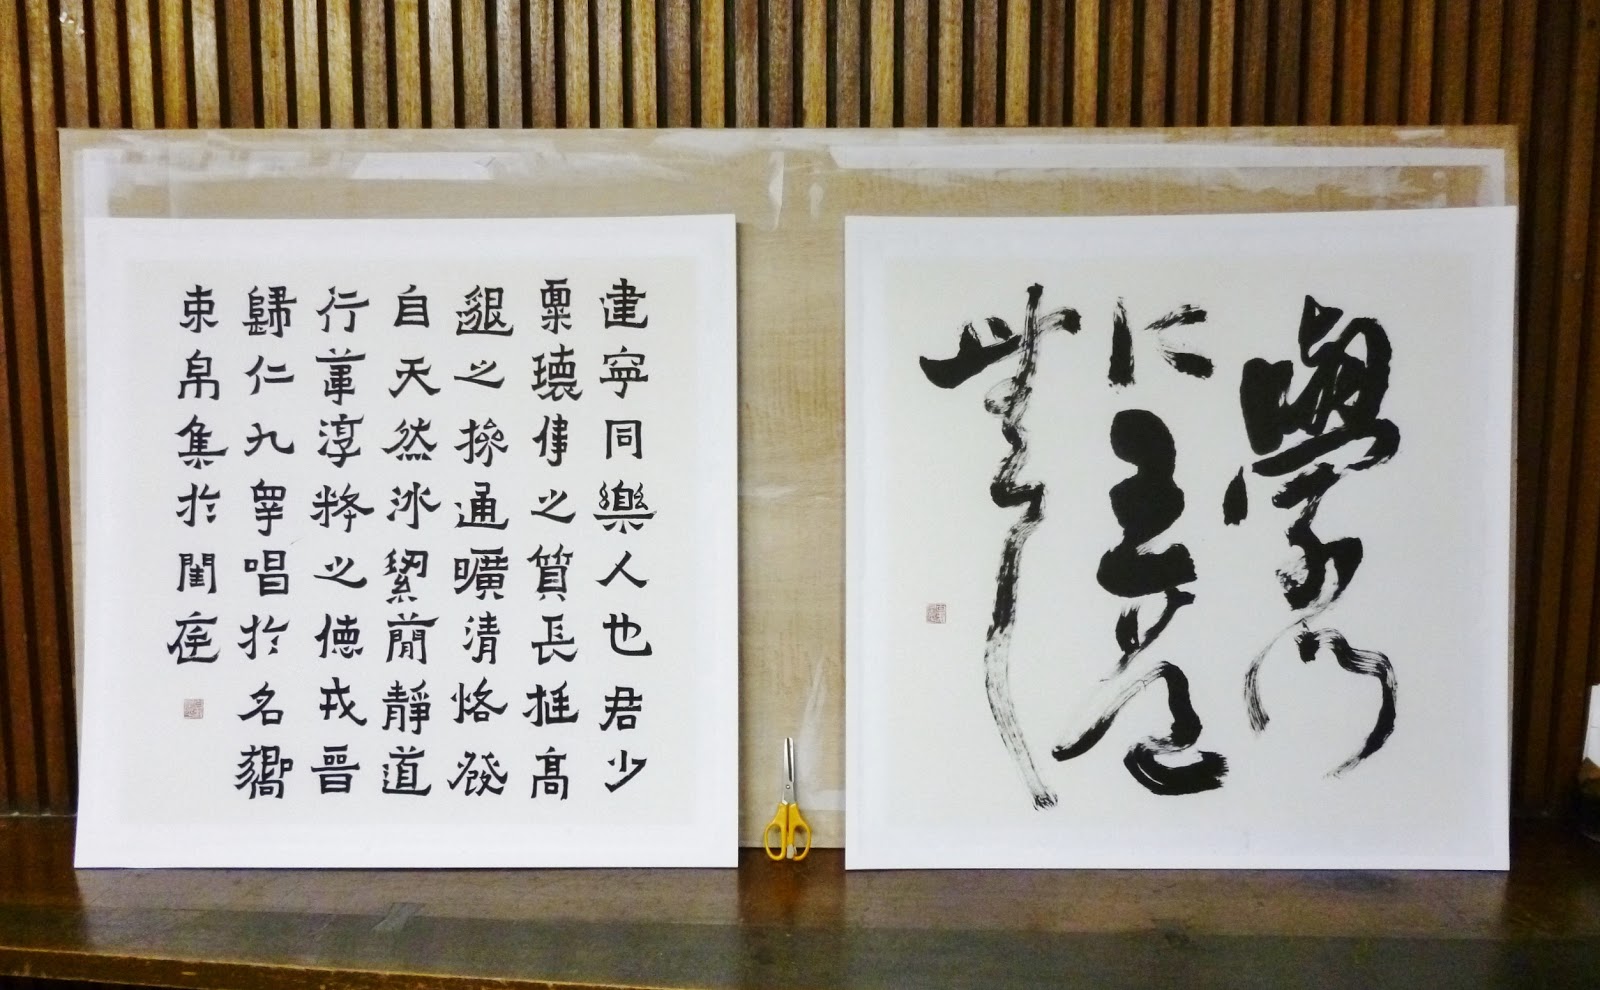 學問
に王道
無し
建寧同樂人也君少
稟瓌偉之質長挺高
邈之操通曠清恪發
自天然冰絜簡靜道
行葦淳粹之德戎晉
歸仁九皋唱於名嚮
束帛集於閨庭